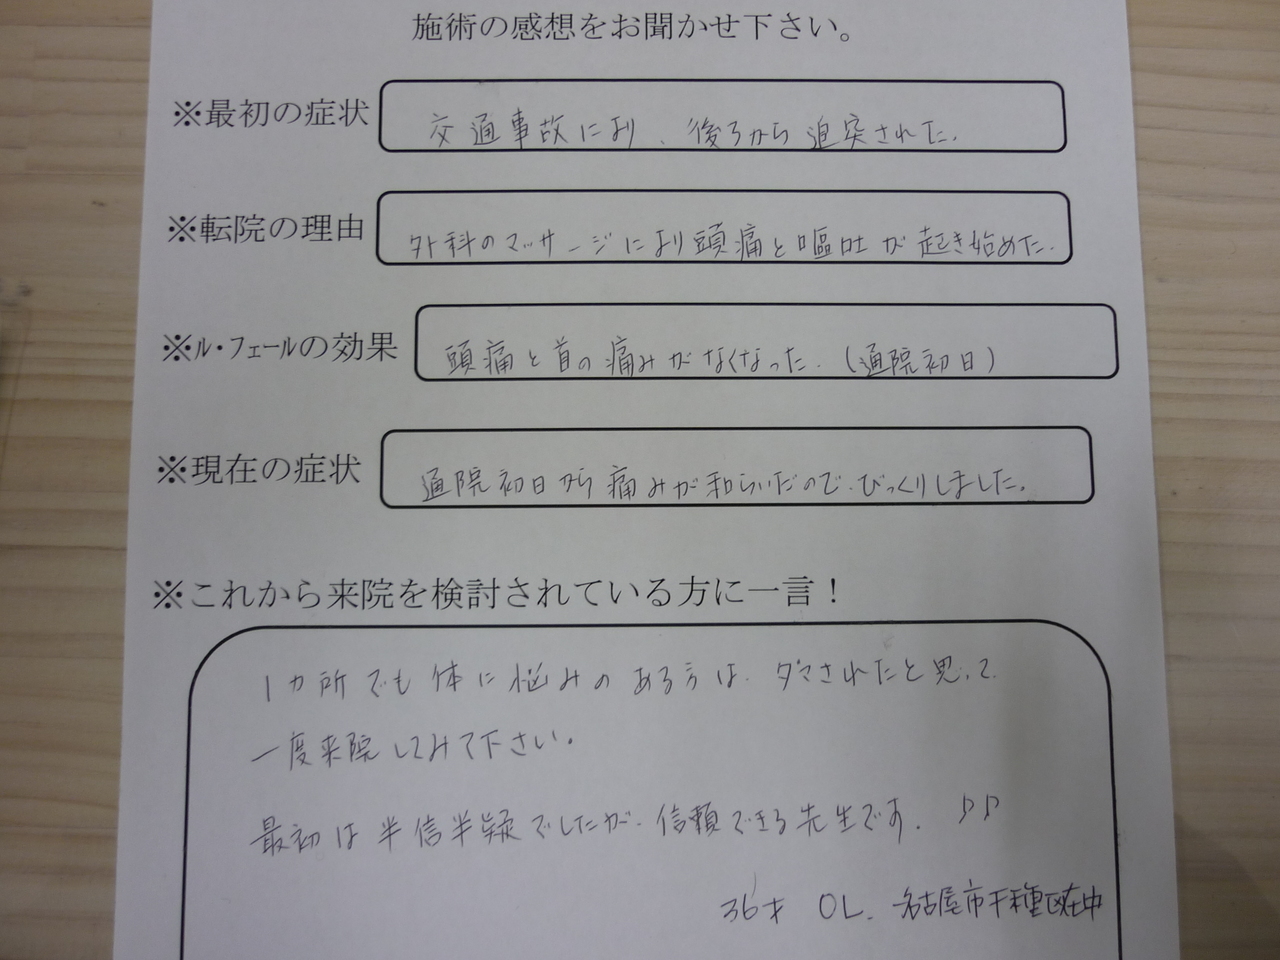 施術の感想をお聞かせ下さい。
※最初の症状
交通事故により、後ろから追突された。
※転院の理由
外科のマッサージにより頭痛と嘔吐が起き始めた.
※ル・フェールの効果
頭痛と首の痛みがなくなった.(通院初日)
※現在の症状
通院初日から痛みが和らいだので、びっくりしました。
※これから来院を検討されている方に一言！
1カ所でも体に悩みのある方は、ダマされたと思って
一度来院してみて下さい。
最初は半信半疑でしたが、信頼できる先生です. ♪♪
36才 OL. 名古屋市千種区在中